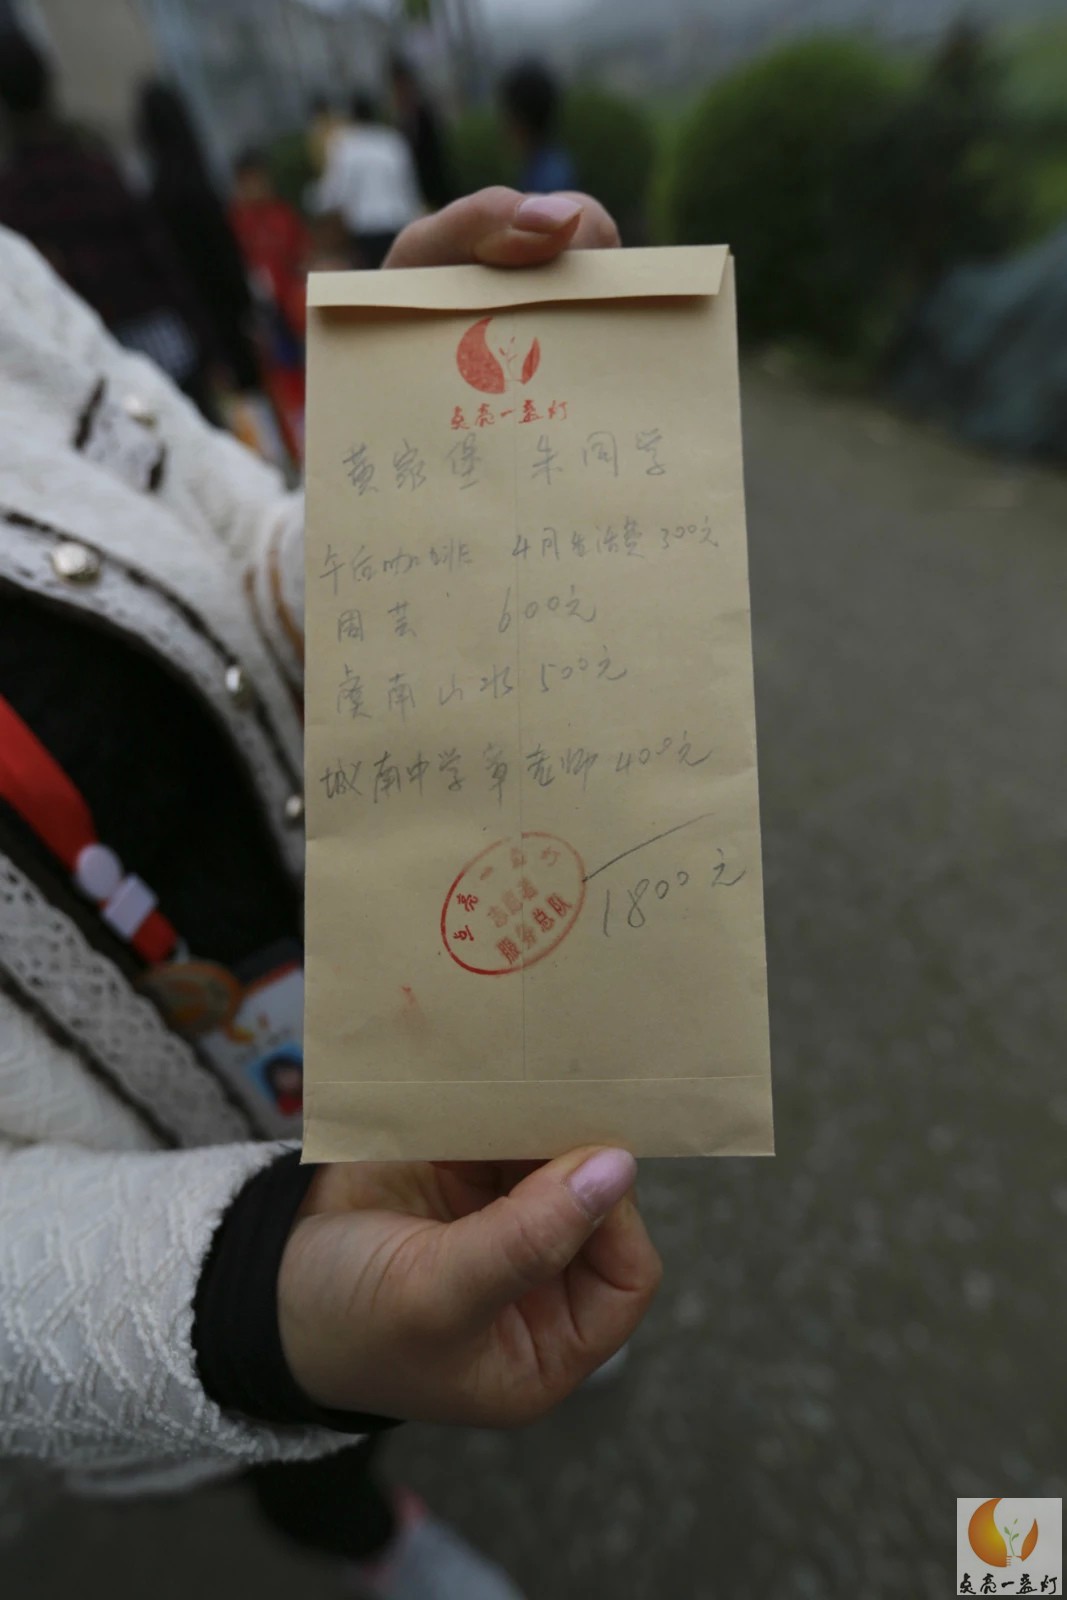 点亮一盏灯
黄家堡 朱同学
午后咖啡 4月生活费 300元
周芸 600元
虞南山水 500元
城南中学章老师 400元
1800元
点亮一盏灯
志愿者
服务总队
点亮一盏灯